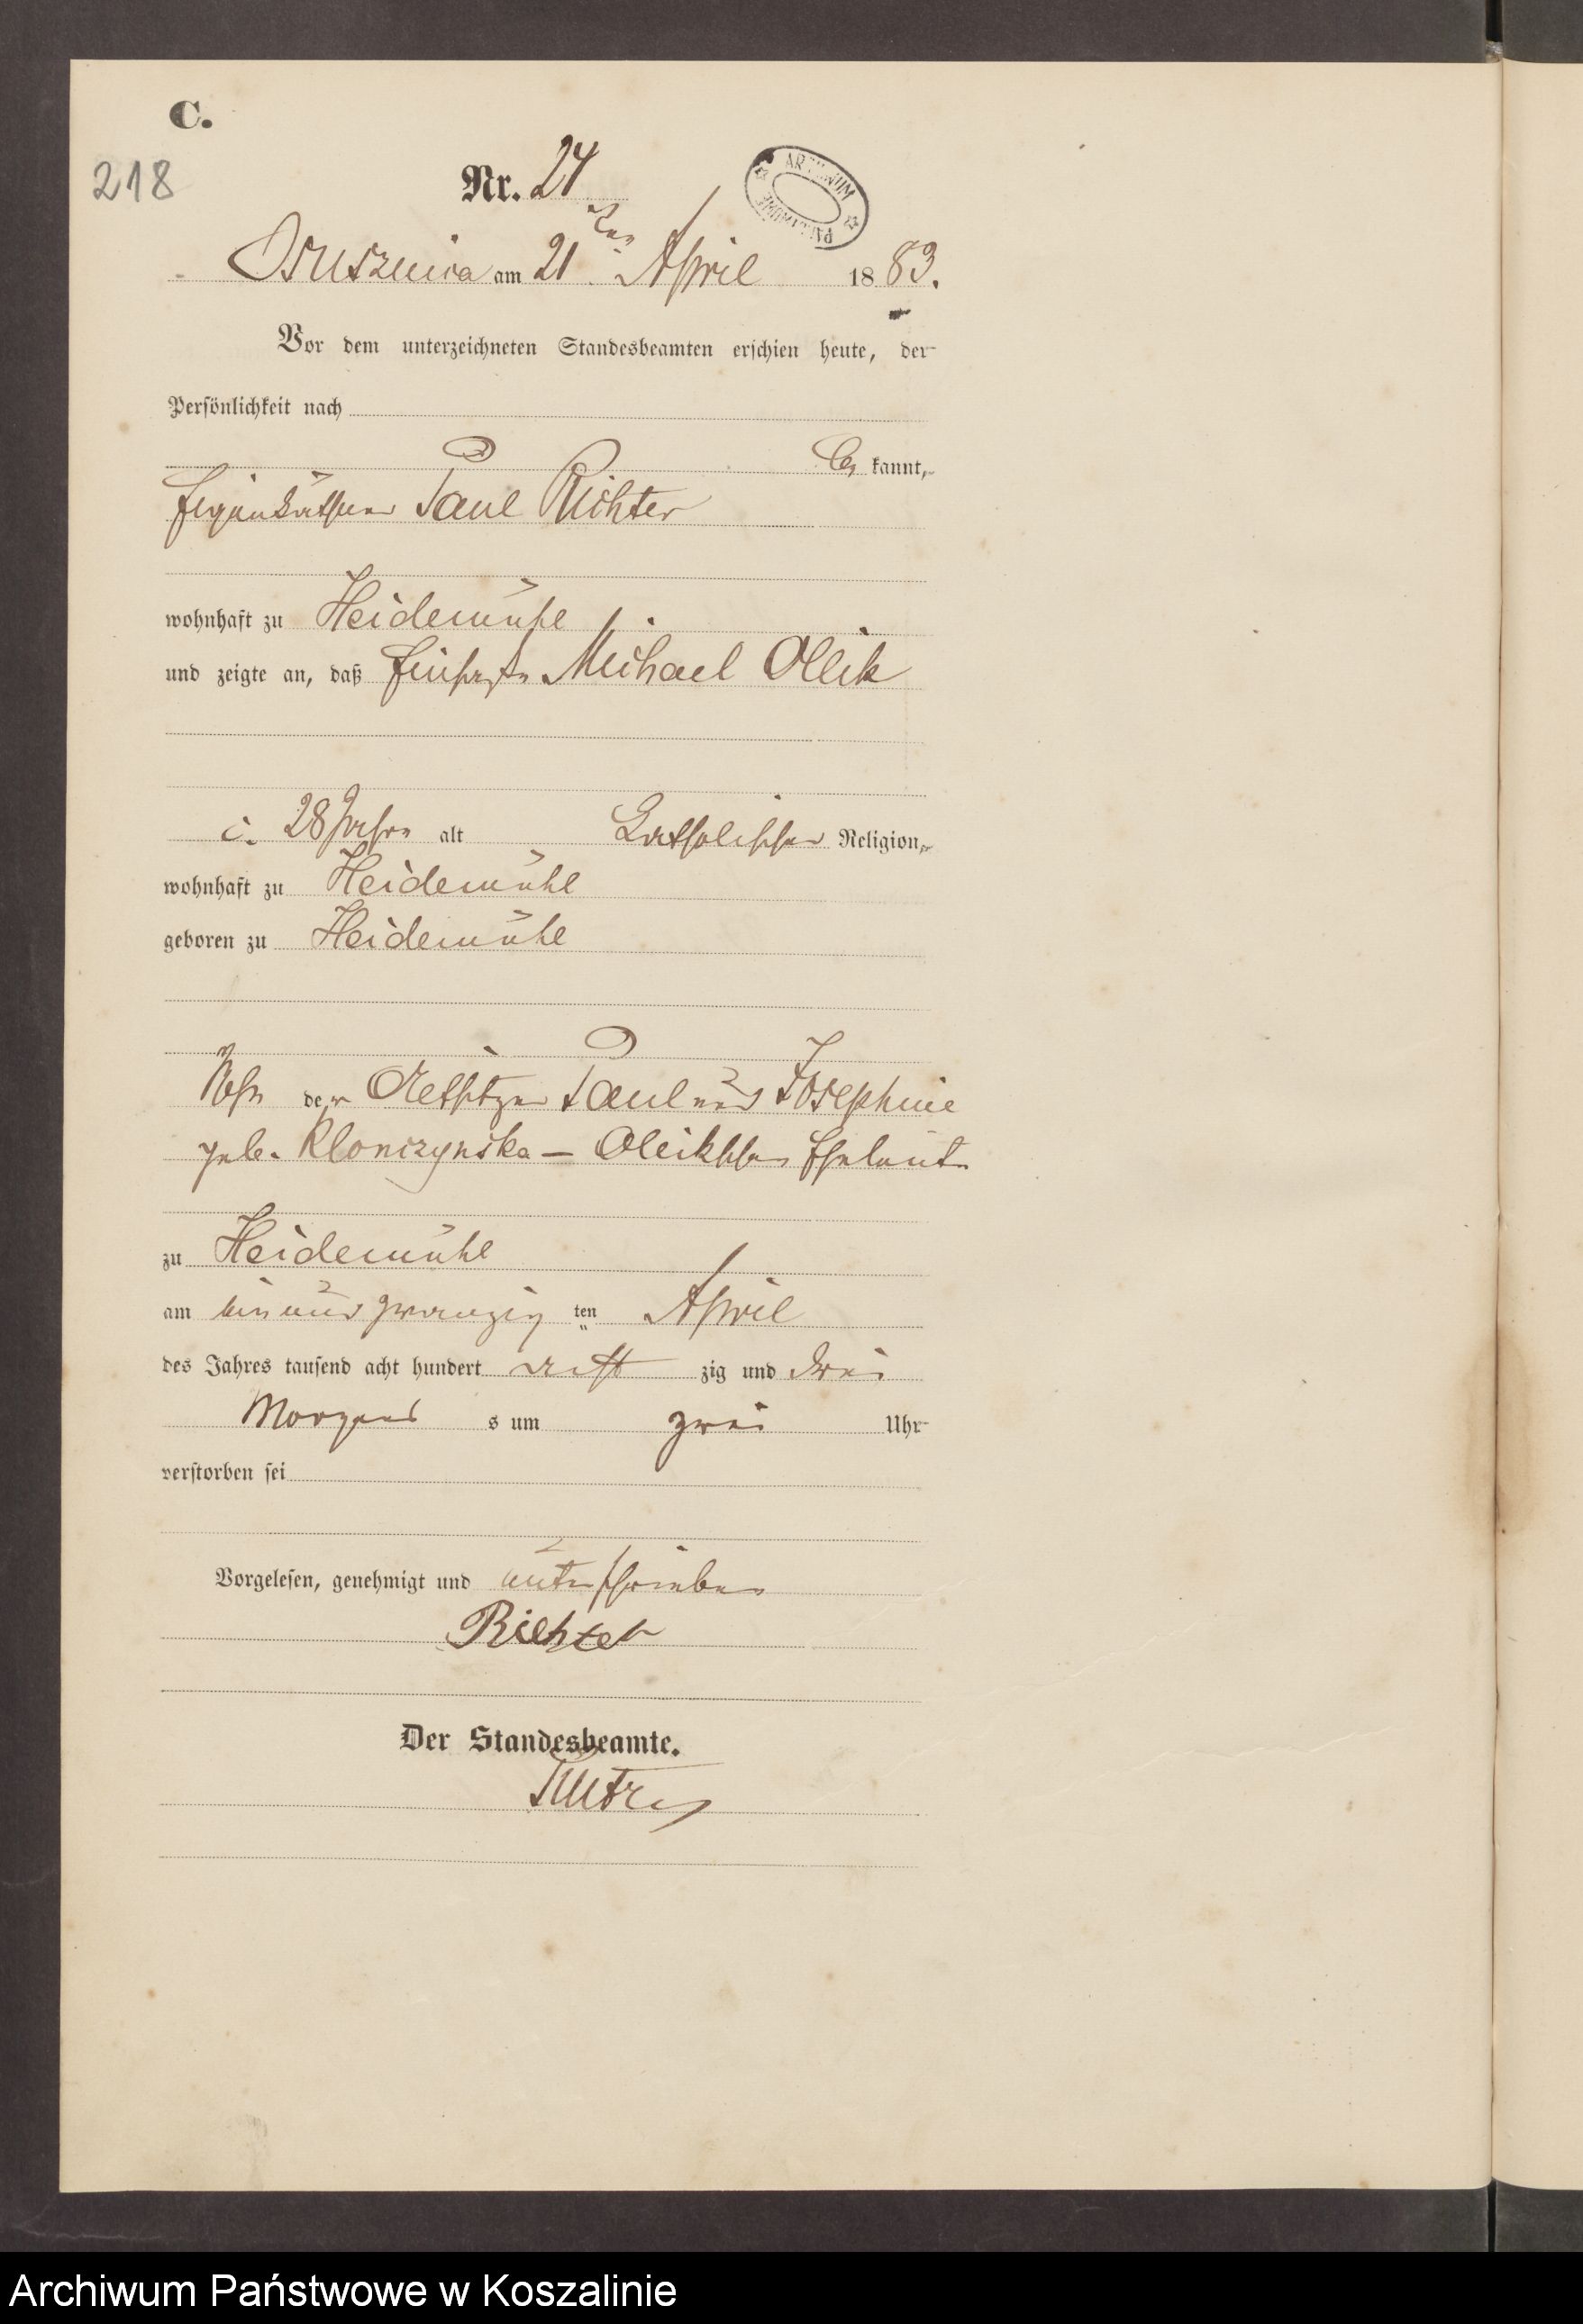 C.
218
Nr. 24
Osusznica am 21 ten April 1883.
Vor dem unterzeichneten Standesbeamten erschien heute, der
Persönlichkeit nach
be kannt,
Eigenkäthner Paul Richter
wohnhaft zu Heidemühl
und zeigte an, daß Michael Olleik
28 Jahre alt katholischer Religion,
wohnhaft zu Heidemühl
geboren zu Heidemühl
Sohn der Paul und Josephine
geb. Klonczynska – Olleikschen Eheleute
zu Heidemühl
am ein und zwanzig ten April
des Jahres tausend acht hundert acht zig und drei
Morgens s um zwei Uhr
verstorben sei
Vorgelesen, genehmigt und unterschrieben
Richter
Der Standesbeamte.
Archiwum Państwowe w Koszalinie